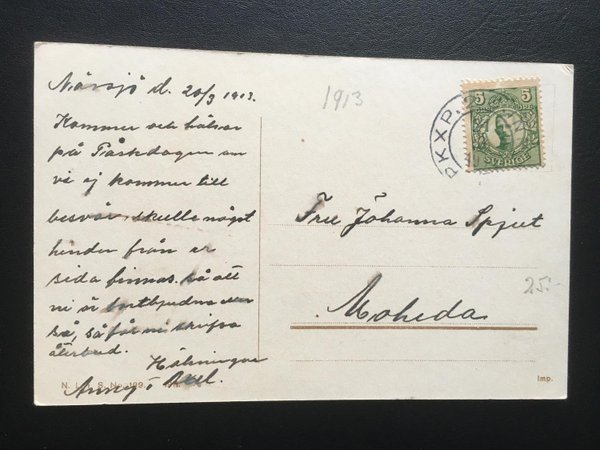 Nässjö d. 20/3 1913.
Kommer och hälsar
på Påskdagen om
vi ej kommer till
besvär, skulle något
hinder från er
sida finnas så att
ni är bortbjudna eller
så, så får ni skrifva
återbud.
Hälsningar
Axel.
1913
PKXP.2
5 5
SVERIGE
Fru Johanna Spjut
Moheda
25:-
Imp.